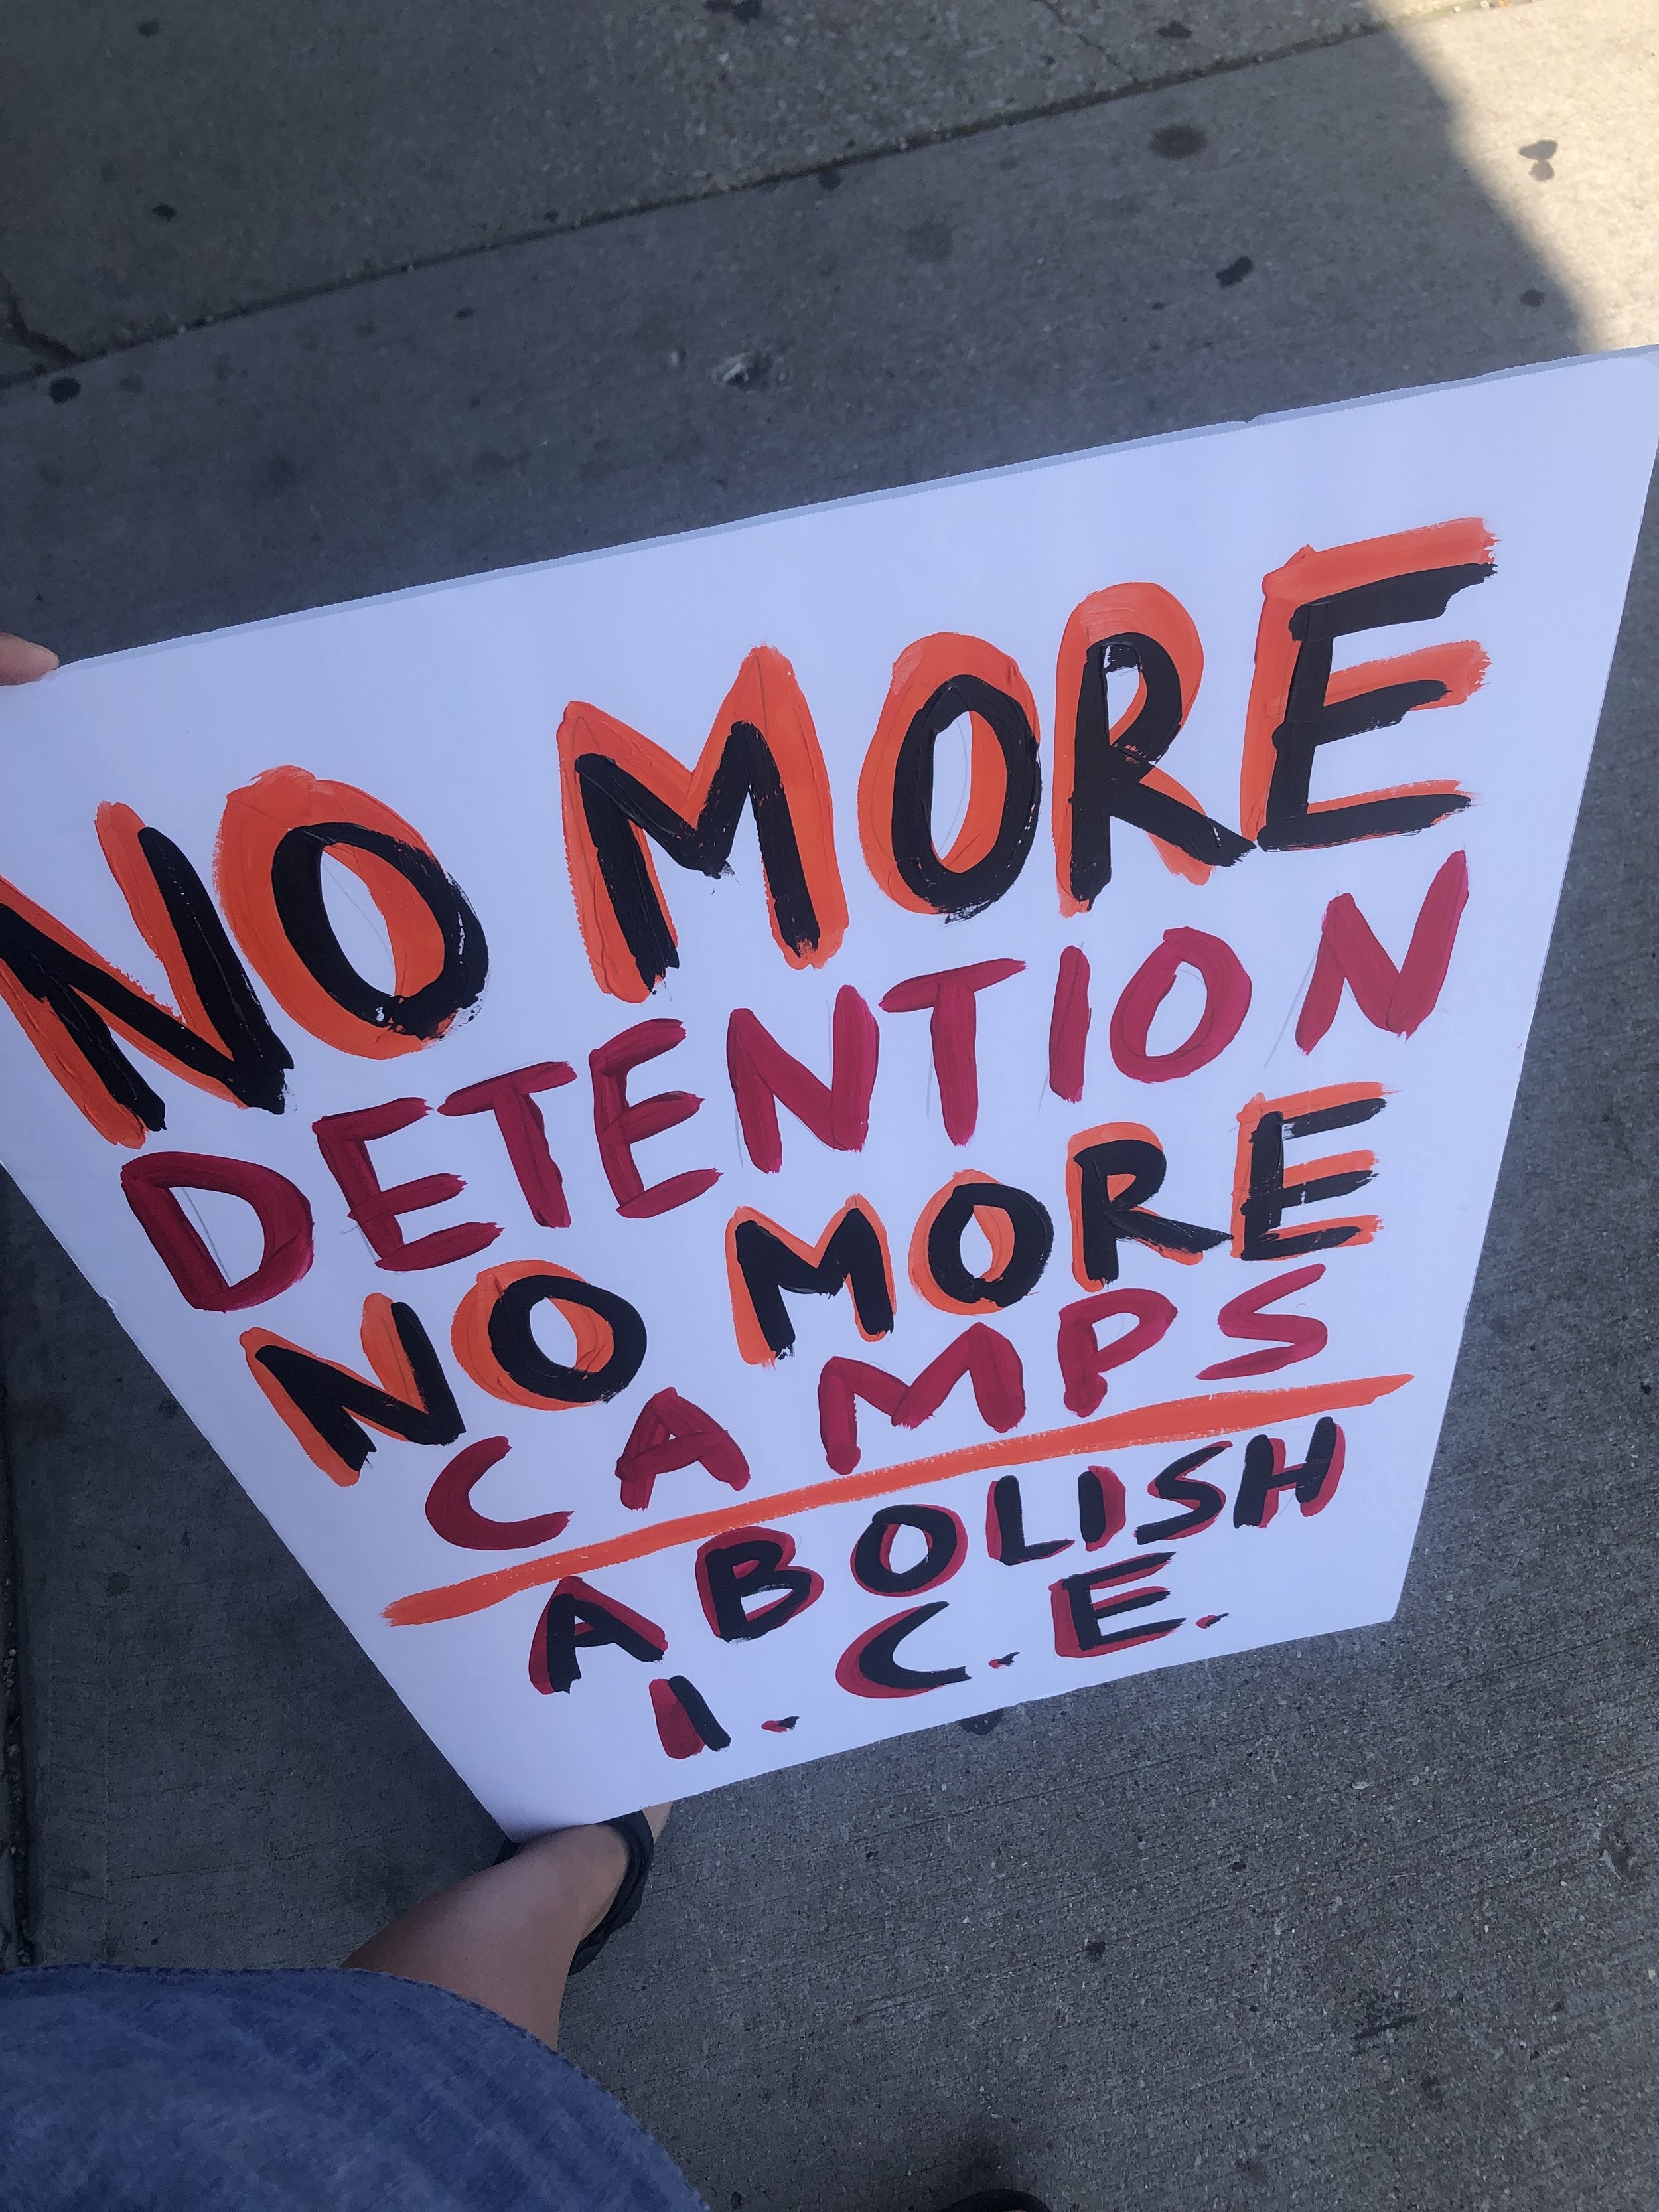 NO MORE
DETENTION
NO MORE
CAMPS
ABOLISH
I.C.E.